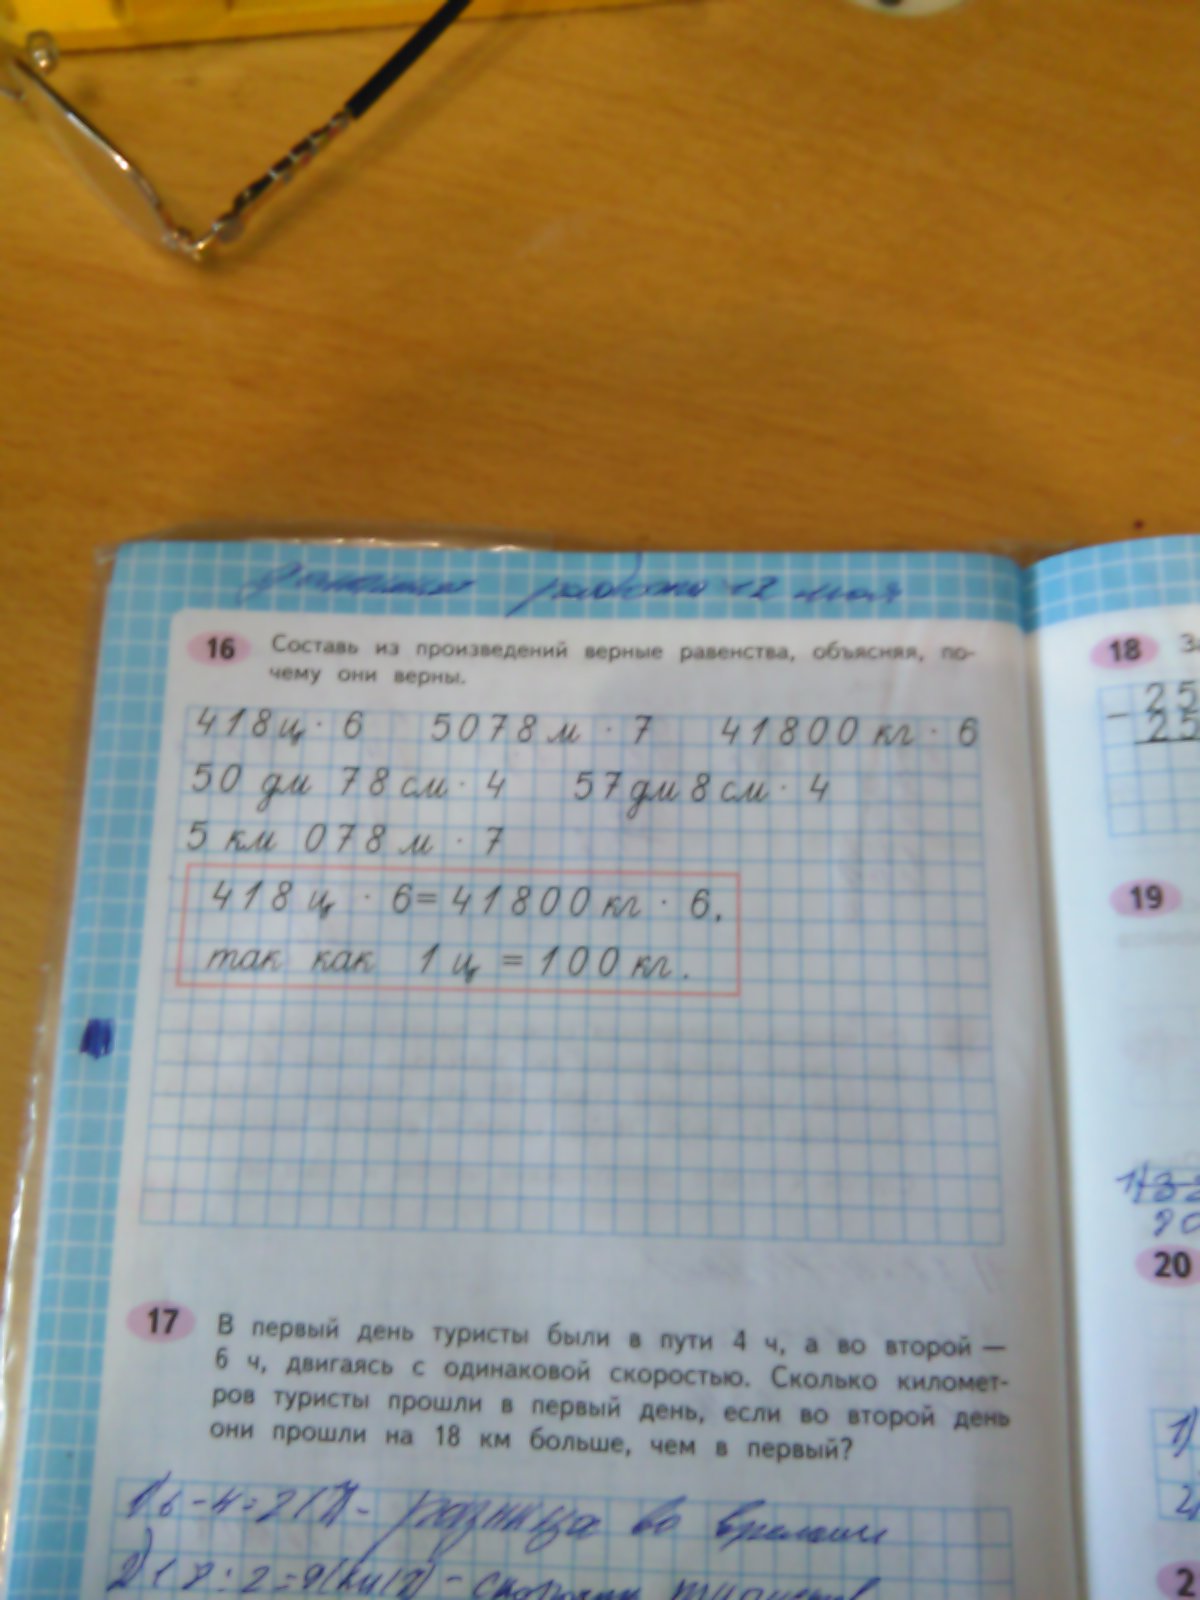 работа 12 мая
16 Составь из произведений верные равенства, объясняя, по-
чему они верны.
418 ц · 6 5078 м · 7 41800 кг · 6
50 дм 78 см · 4 57 дм 8 см · 4
5 км 078 м · 7
418 ц · 6 = 41800 кг · 6,
так как 1 ц = 100 кг.
17 В первый день туристы были в пути 4 ч, а во второй —
6 ч, двигаясь с одинаковой скоростью. Сколько километ-
ров туристы прошли в первый день, если во второй день
они прошли на 18 км больше, чем в первый?
1) 6-4=2(ч)- разница во времени
18
25
- 25
19
20
1)
2)
2